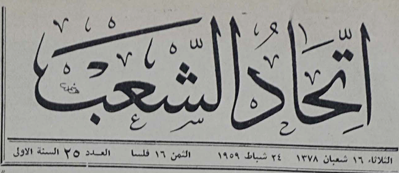 اتحاد الشعب
الثلاثاء ١٦ شعبان ١٣٧٨ ٢٤ شباط ١٩٥٩ الثمن ١٦ فلسا العدد ٢٥ السنة الاولى